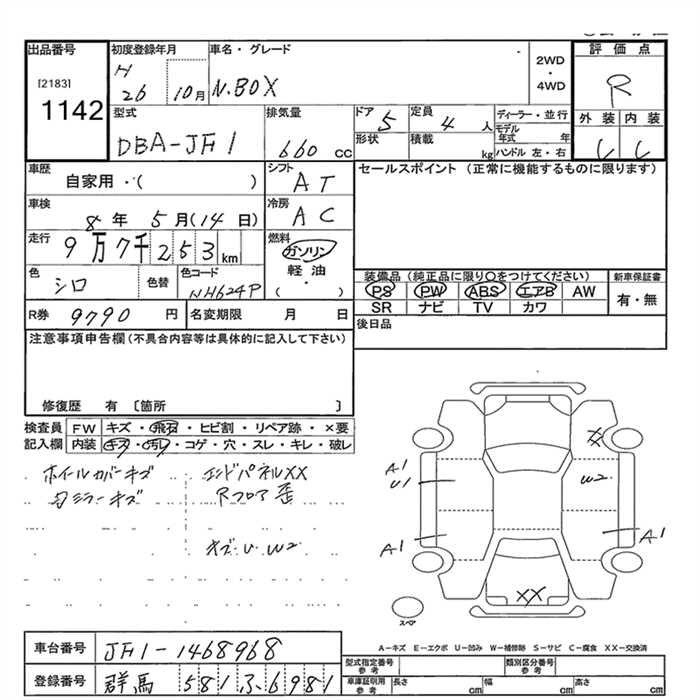 出品番号 初度登録年月 車名・グレード 2WD・4WD 評価点
[2183] H N.BOX R
1142 26 10月
型式 排気量 ドア 定員 ディーラー・並行 外装 内装
DBA-JF1 660 CC 5 4 人 モデル年式 年
形状 積載 kg ハンドル 左・右
車歴 シフト セールスポイント (正常に機能するものに限ります)
自家用・( ) AT
車検 冷房
8年 5月(14日) AC
走行 燃料
9万7千253km ガソリン
軽油
・
( )
色 色替 色コード 装備品 (純正品に限り○をつけてください) 新車保証書
シロ NH624P PS PW ABS エアB AW 有・無
SR ナビ TV カワ
R券 9790 円 名変期限 月 日 後日品
注意事項申告欄 (不具合内容等は具体的に記入して下さい)
修復歴 有 [箇所 ]
検査員 FW キズ・飛石・ヒビ割・リペア跡・×要
記入欄 内装 キズ・汚れ・コゲ・穴・スレ・キレ・破レ
ホイールカバーキズ エンドパネルXX
Rフロア歪
ミラーキズ
キズ・U・W2
XX
A1
U1
W2
A1
A1
XX
スペア
A-キズ E-エクボ U-凹み W-補修跡 S-サビ C-腐食 XX-交換済
車台番号 JF1-1468968
型式指定番号 参考 類別区分番号 参考
登録番号 群馬 581 ふ 6981
車庫証明用 参考 長さ cm 幅 cm 高さ cm